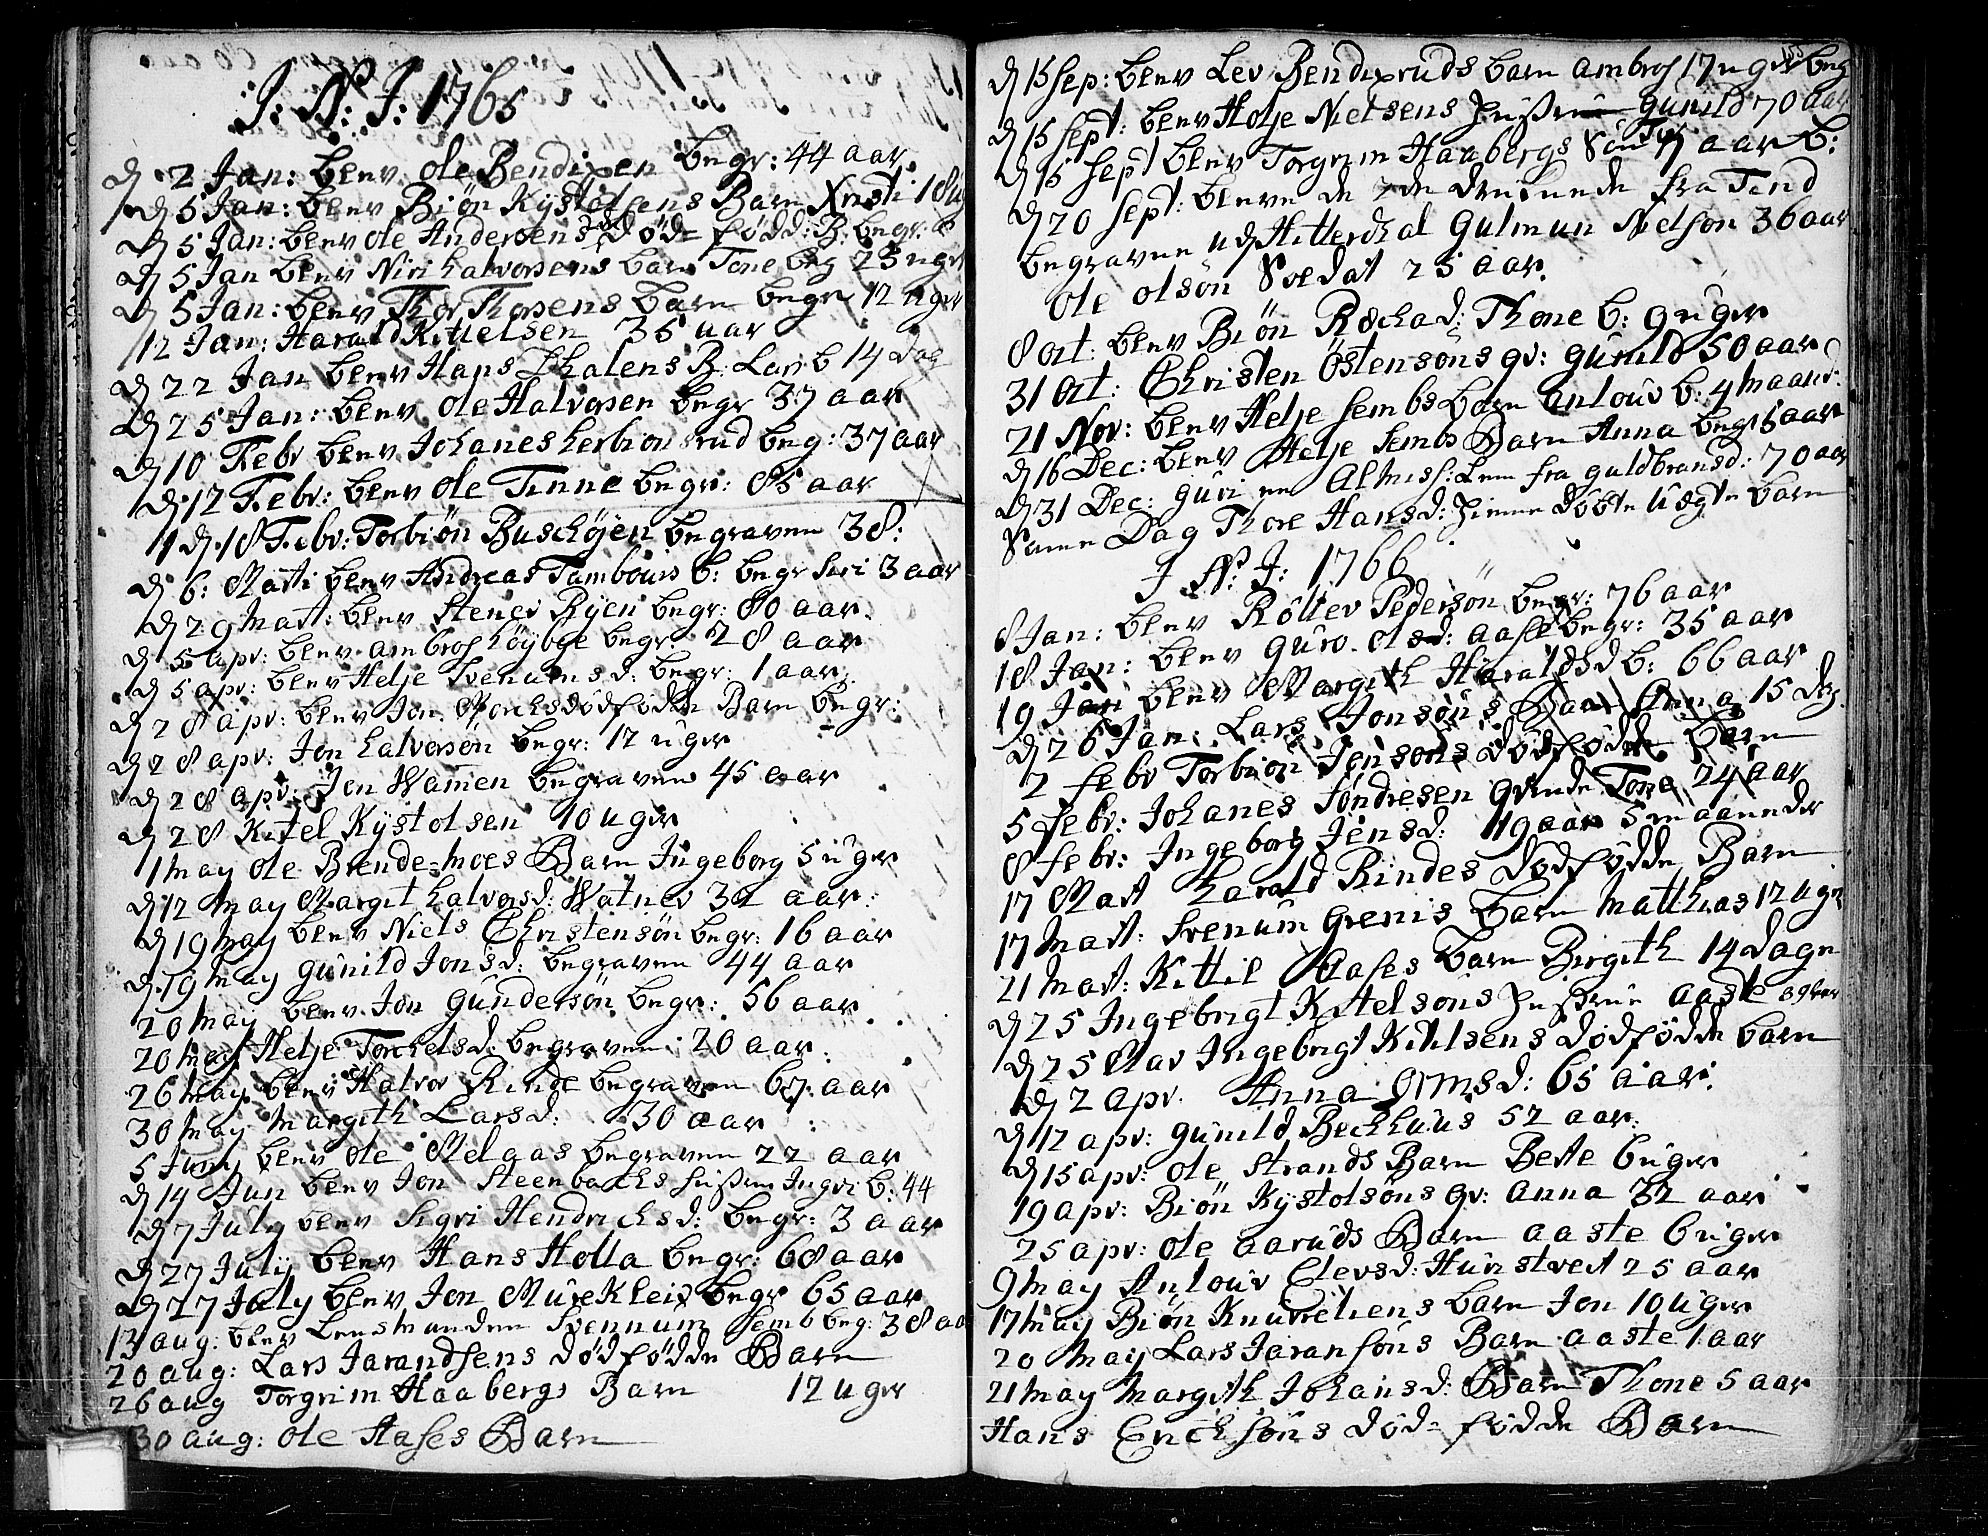 J: N: J: 1765
d 2 Jan: blev Ole Bendixen begr: 44 aar
d 5 Jan: blev Biøn Kystolsens Barn Xnsti 18 ug
d 5 Jan: blev Ole Andersens død= fødd: B: begr:
d 5 Jan blev Niri Halvorsens barn Tone beg 23 ugr
d 5 Jan: blev Thor Thorsens barn begr 12 uger
12 Jan: Harald Kittelsen 36 aar
d 22 Jan blev Hans Skalens B: Lars b 14 dag
d 25 Jan: blev Ole Halvorsen begr 37 aar
d 10 Febr blev Johanes Lerbionsrud beg: 37 aar
d: 12 Febr: blev Ole Tinne begr: 85 aar
d. 18 Febr: Torbiøn Buschøjen begraven 38:
d 6: Marti blev Andreas Tambours b: begr Siri 3 aar
d 29 Mart: blev Stener Ryen begr: 80 aar
d 5 apr: blev ambros Høybye begr: 28 aar
d 5 apr: blev Helje Svenumsd: begr: 1 aar
d 28 apr: blev Jon Morchs dødfødde Barn begr:
d 28 apr: Jon Halvorsøn begr: 12 uger
d 28 apr: Jon Wamen begraven 45 aar
d 28 Kittel Kystolsen 10 uger
1 May Ole Brende=moes Barn Ingeborg 5 uger
d 12 May Margit Halvorsd: Watner 32 aar:
d 19 May blev Niels Christensøn begr: 16 aar
d. 19 May Gunild Jonsd: begraven 44 aar
20 May blev Jon Gundersøn begr: 56 aar
20 May Helje Torchelsd: begraven 20 aar
26 May blev Halvor Rinde begraven 67 aar
30 May Margith Larsd: 30 aar
5 Juny blev Ole Melaas begraven 22 aar
d 14 Jun blev Jon Steenbachs Hustru Ingri b: 44
d 7 July blev Sigri Hendrichsd: begr: 3 aar
d 27 July blev Hans Holla begr: 68 aar
d 27 July blev Jon Mureklev begr 65 aar
13 aug: blev Lensmanden Svennum Semb beg: 38 aa
20 aug: Lars Jarandsens dødfødde Barn
26 aug Torgrim Haabergs Barn 12 uger
30 aug: Ole Hases Barn
155
d 15 Sep: blev Lev Bendixruds barn ambros 17 uger beg
d 15 Sept: blev Holje Nielsens Hustrue Gunild 70 aar
d 15 Sept blev Torgrim Haabergs Søn aar b:
d 20 Sept: bleve de 2de druknede fra Tind
begraven ud Hitterdal Gulmun Nielson 36 aar
Ole Olsøn Soldat 25 aar.
8 Oct: blev Biøn Rochad: Thone b: 9 uger
31 Oct: Christen Østensøns qv: Gunild 50 aar
21 Nov: blev Helje Sembs barn Anlouv b: 4 Maan:
d 16 Dec: blev Helje Sembs Barn Anna begr 6 aar
d 31 Dec: Guri en Almisf: Lem fra Guldbrandsd: 70 aar
Same Dag Thore Hansd: hieme døbte Uægte barn
J N: J: 1766
8 Jan: blev Rollev Pedersøn begr: 76 aar
18 Jan: blev Guro Olsd: aase begr: 35 aar
19 Jan blev Margith Haraldsd b: 66 aar
d 26 Jan: Lars Jonsøns Barn Anna 15 dag
2 Febr Torbiøn Jensøns dødfødde barn
5 Febr: Johanes Søndresen qvinde Tone 24 aar
8 Febr: Ingeborg Jensd: 19 aar 5 maaneder
17 Mart Harald Rindes dødfødde Barn
17 Mart: Svenum Grenis barn Matthias 12 ugr
21 Mart: Kittil Aases barn Birgith 14 dage
d 25 Ingebrigt Kittelsøns Hustrue aaste 39 aar
d 25 Mar Ingebrigt Kittelsens dødfødde barn
d 2 apr. Anna Ormsd: 65 aar:
d 12 apr: Gunild Bechhuus 52 aar:
d 15 apr: Ole Strands Barn Berte 6 uger
19 apr: Biøn Kystolsøns qv: Anna 32 aar
25 apr: Ole aaruds Barn aaste 6 uger
9 May Anlouv Elevsd: Hurstveit 25 aar
17 May Biøn Knureliens barn Jon 10 uger
20 May Lars Jaransøns Barn aaste 1 aar
21 May Margith Johansd: Barn Thone 5 aar
Hans Erichsøns død= fødde Barn